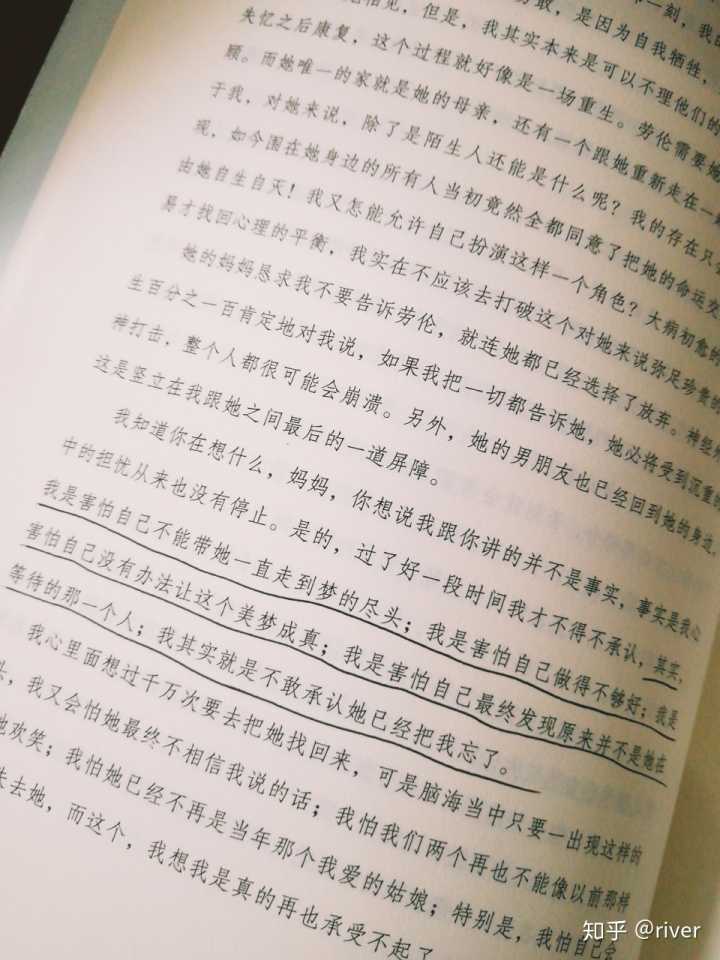 一刻,我的
勇敢,是因为自我牺牲,
相见,但是,我其实本来是可以不理他们的
失忆之后康复,这个过程就好像是一场重生。劳伦需要她
顾。而她唯一的家就是她的母亲,还有一个跟她重新走在一
于我,对她来说,除了是陌生人还能是什么呢?我的存在只
现,如今围在她身边的所有人当初竟然全都同意了把她的命运交
由她自生自灭!我又怎能允许自己扮演这样一个角色?大病初愈的
易才找回心理的平衡,我实在不应该去打破这个对她来说弥足珍贵的
她的妈妈恳求我不要告诉劳伦,就连她都已经选择了放弃。神经外
生百分之一百肯定地对我说,如果我把一切都告诉她,她必将受到沉重
神打击,整个人都很可能会崩溃。另外,她的男朋友也已经回到她的身边,
这是竖立在我跟她之间最后的一道屏障。
我知道你在想什么,妈妈,你想说我跟你讲的并不是事实,事实是我心
中的担忧从来也没有停止。是的,过了好一段时间我才不得不承认,其实,
我是害怕自己不能带她一直走到梦的尽头;我是害怕自己做得不够好;我是
害怕自己没有办法让这个美梦成真;我是害怕自己最终发现原来并不是她在
等待的那一个人;我其实就是不敢承认她已经把我忘了。
我心里面想过千万次要去把她找回来,可是脑海当中只要一出现这样的
头,我又会怕她最终不相信我说的话;我怕我们两个再也不能像以前那样
地欢笑;我怕她已经不再是当年那个我爱的姑娘;特别是,我怕自己会
失去她,而这个,我想我是真的再也承受不起了
知乎 @river